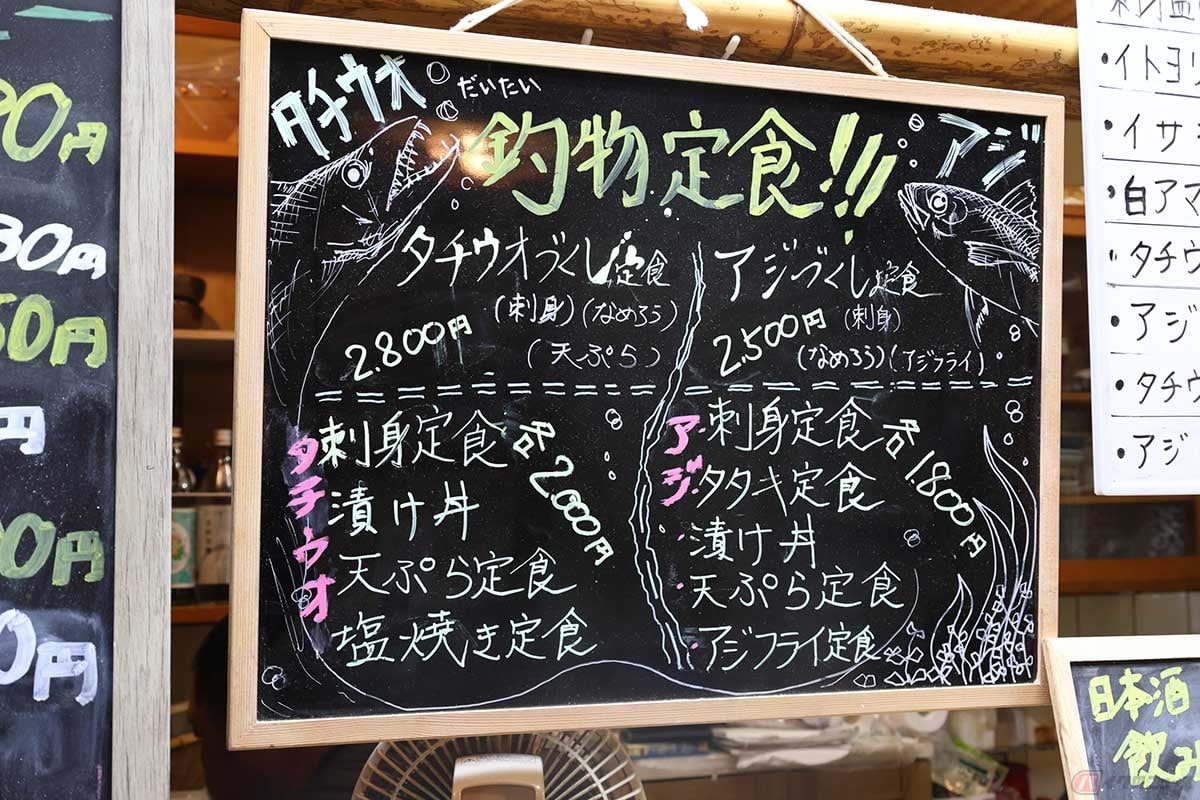 円
30円
50円
円
00円
0円
タチウオ
だいたい
釣物定食!!!
アジ
タチウオづくし定食
(刺身)(なめろう)
(天ぷら)
2.800円
アジづくし定食
(刺身)
(なめろう)(アジフライ)
2,500円
タチウオ
刺身定食
漬け丼
天ぷら定食
塩焼き定食
各2.000円
アジ
・刺身定食
・タタキ定食
・漬け丼
・天ぷら定食
・アジフライ定食
各1.800円
・イトヨリ
・イサ
・白アマ
・タチウ
・アジ
・タチウ
・アジ
日本酒
飲み